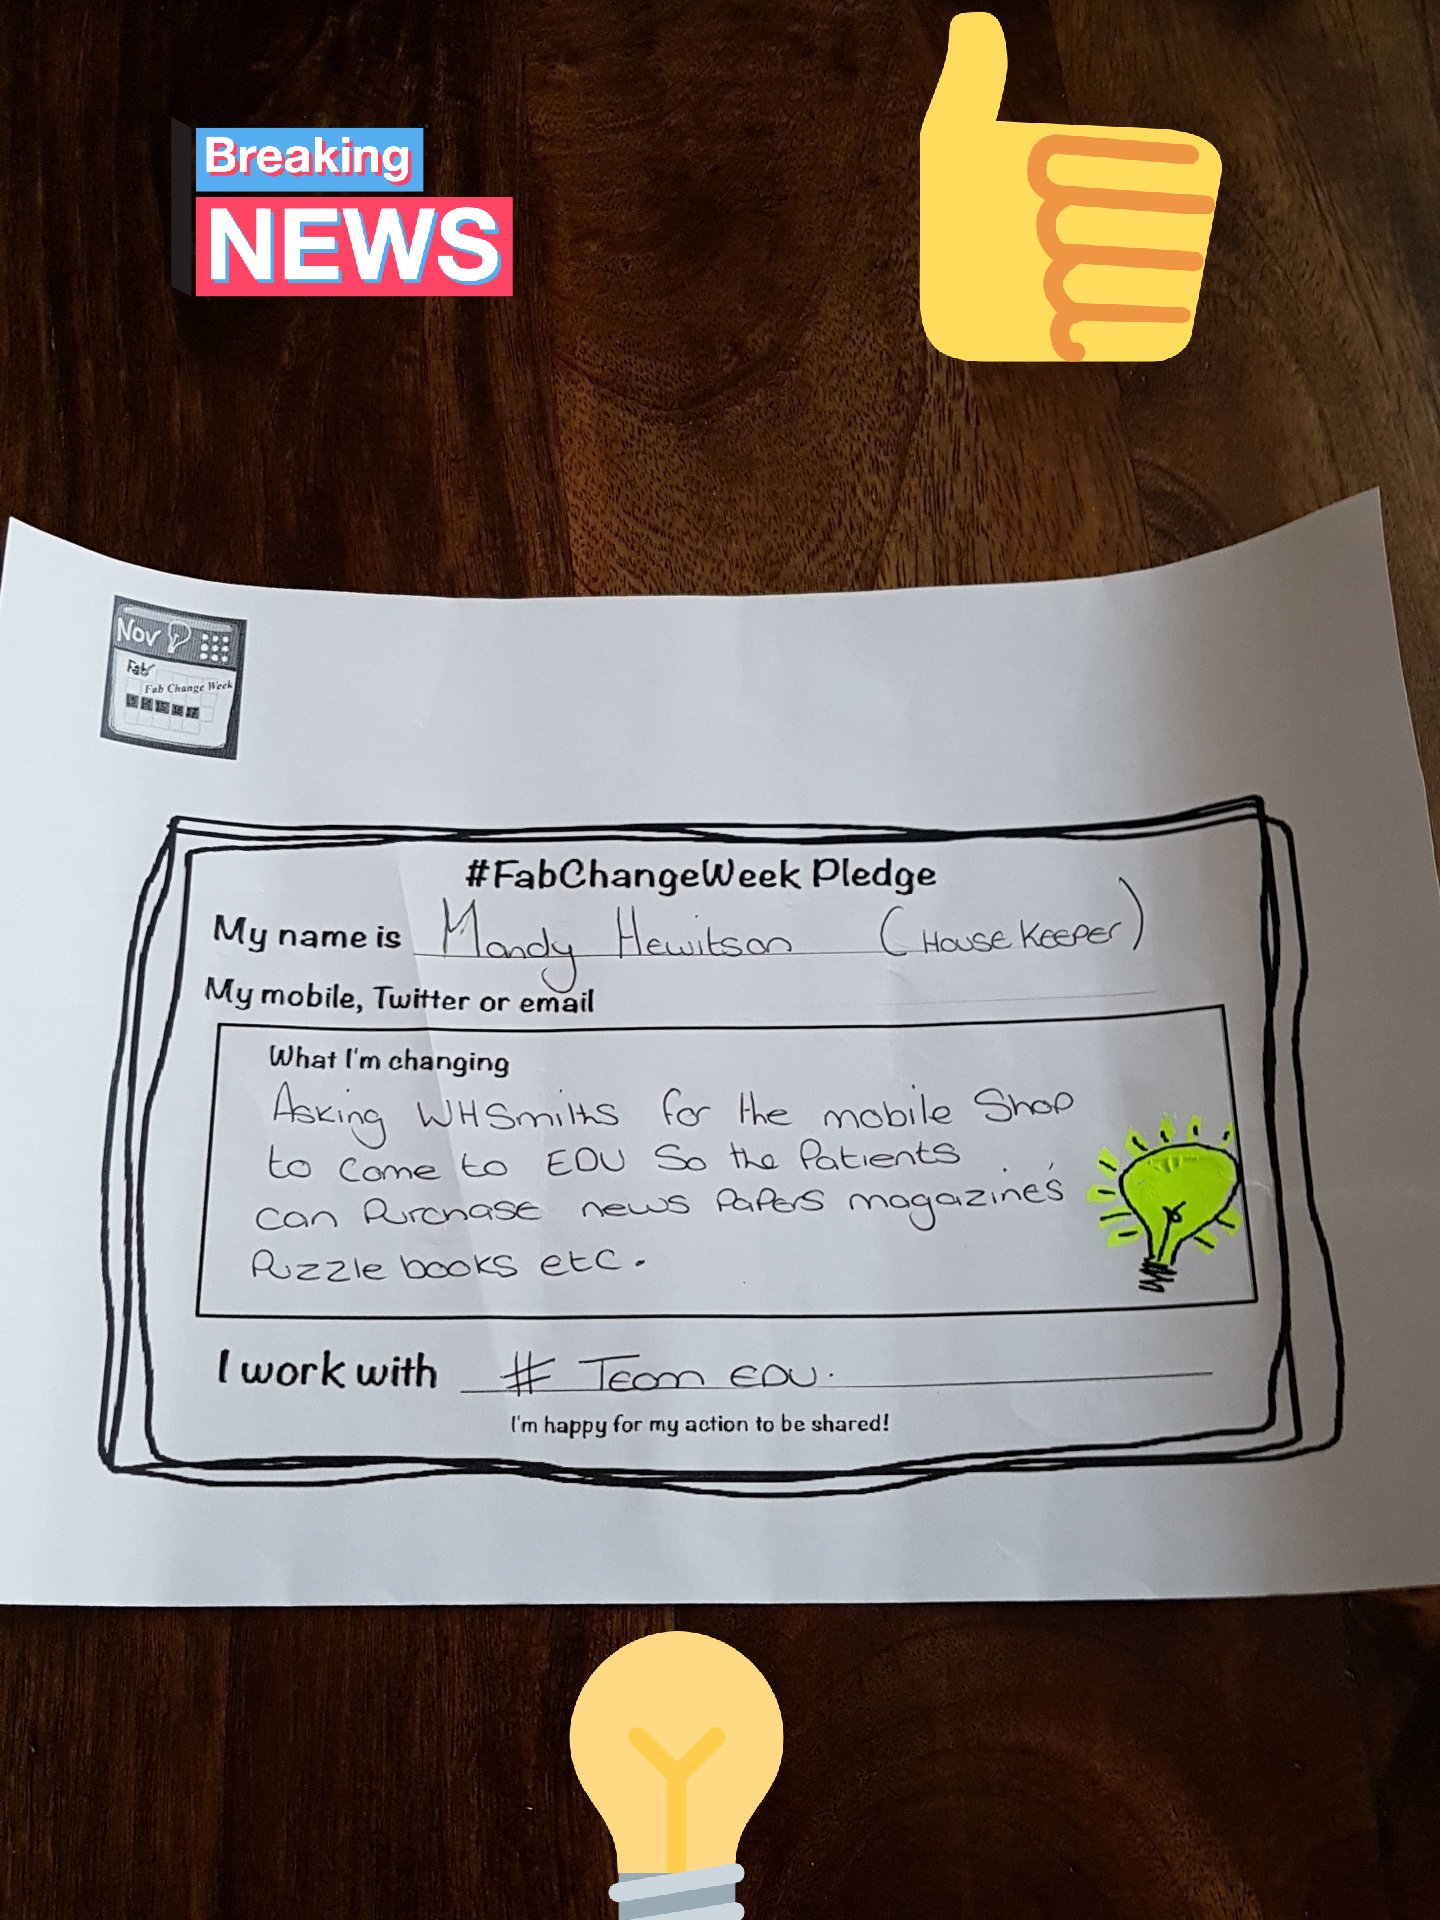 Breaking
NEWS
Nov
Fab
Fab Change Week
13 14 15 16 17
#FabChangeWeek Pledge
My name is Mandy Hewitson (House Keeper)
My mobile, Twitter or email
What I'm changing
Asking WHSmiths for the mobile Shop
to come to EDU So the Patients
can Purchase news PaPers magazine's
Puzzle books etc.
I work with # Team EDU.
I'm happy for my action to be shared!